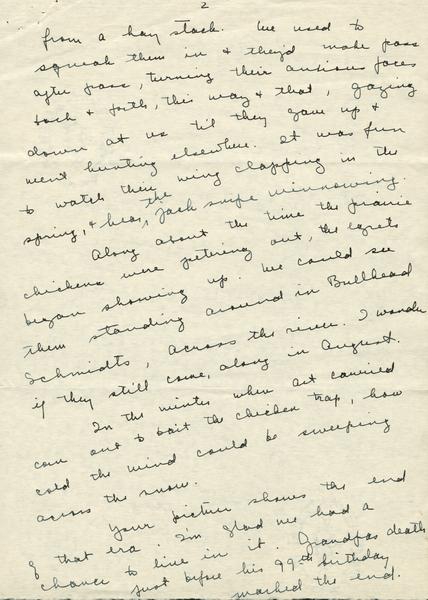 2
from a hay stack. We used to
squeak them in & they'd make pass
after pass, turning their anxious faces
back & forth, this way & that, gazing
down at us 'til they gave up &
went hunting elsewhere. It was fun
to watch their wing clapping in the
spring, & hear the jack snipe winnowing.
Along about the time the prairie
chickens were petering out, the egrets
began showing up. We could see
them standing around in Bullhead
Schmidts, across the river. I wonder
if they still come, along in August.
In the winter when Art carried
corn out to bait the chicken trap, how
cold the wind could be sweeping
across the snow.
Your picture shows the end
of that era. I'm glad we had a
chance to live in it. Grandpas death
just before his 99th birthday
marked the end.